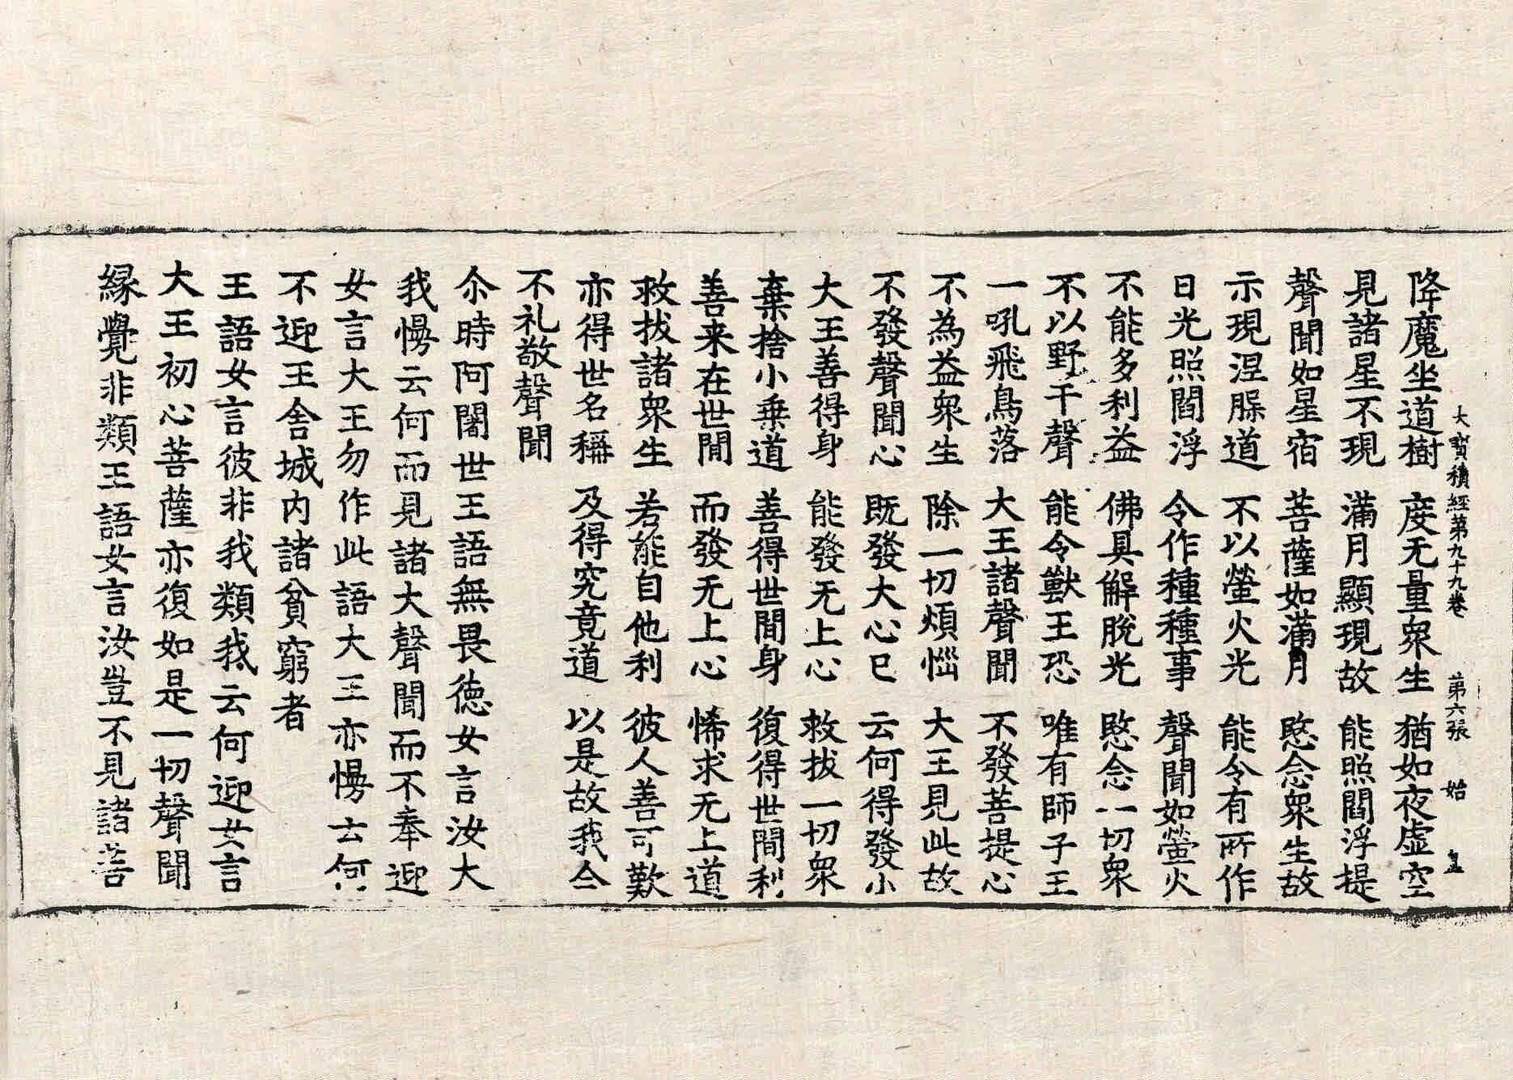 大寳積經第九十九卷 第六張 始
降魔坐道樹 度无量衆生 猶如夜虚空
見諸星不現 滿月顯現故 能照閻浮提
聲聞如星宿 菩薩如滿月 愍念衆生故
示現涅槃道 不以螢火光 能令有所作
日光照閻浮 令作種種事 聲聞如螢火
不能多利益 佛具解脫光 愍念一切衆
不以野干聲 能令獸王恐 唯有師子王
一吼飛鳥落 大王諸聲聞 不發菩提心
不為益衆生 除一切煩惱 大王見此故
不發聲聞心 既發大心已 云何得發小
大王善得身 能發无上心 救拔一切衆
棄捨小乗道 善得世間身 復得世間利
善来在世間 而發无上心 悕求无上道
救拔諸衆生 若能自他利 彼人善可歎
亦得世名稱 及得究竟道 以是故我今
不礼敬聲聞
尒時阿闍世王語無畏徳女言汝大
我慢云何而見諸大聲聞而不奉迎
女言大王勿作此語大王亦慢云何
不迎王舍城内諸貧窮者
王語女言彼非我類我云何迎女言
大王初心菩薩亦復如是一切聲聞
縁覺非類王語女言汝豈不見諸菩